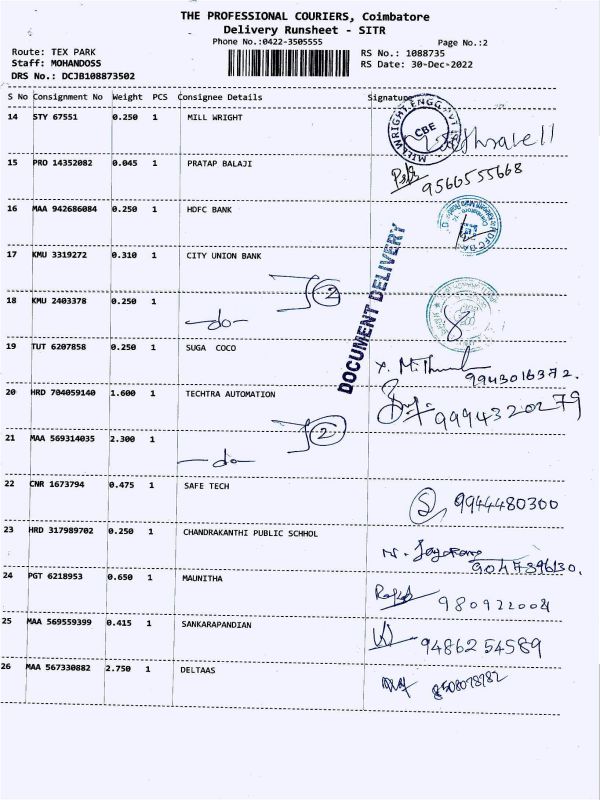 THE PROFESSIONAL COURIERS, Coimbatore
Delivery Runsheet - SITR
Phone No.:0422-3505555 Page No.:2
Route: TEX PARK RS No.: 1088735
Staff: MOHANDOSS RS Date: 30-Dec-2022
DRS No.: DCJB108873502
S No Consignment No Weight PCS Consignee Details Signature
14 STY 67551 0.250 1 MILL WRIGHT
MILLWRIGHT ENGG PVT CBE
15 PRO 14352082 0.045 1 PRATAP BALAJI
9566555668
16 MAA 942686084 0.250 1 HDFC BANK
17 KMU 3319272 0.310 1 CITY UNION BANK
DOCUMENT DELIVERY
2
18 KMU 2403378 0.250 1 -do-
19 TUT 6207858 0.250 1 SUGA COCO
9943016372.
20 HRD 704059140 1.600 1 TECHTRA AUTOMATION
9994320279
2
21 MAA 569314035 2.300 1 -do-
22 CNR 1673794 0.475 1 SAFE TECH
9944480300
23 HRD 317989702 0.250 1 CHANDRAKANTHI PUBLIC SCHHOL
24 PGT 6218953 0.650 1 MAUNITHA
25 MAA 569559399 0.415 1 SANKARAPANDIAN
9486254589
26 MAA 567330882 2.750 1 DELTAAS